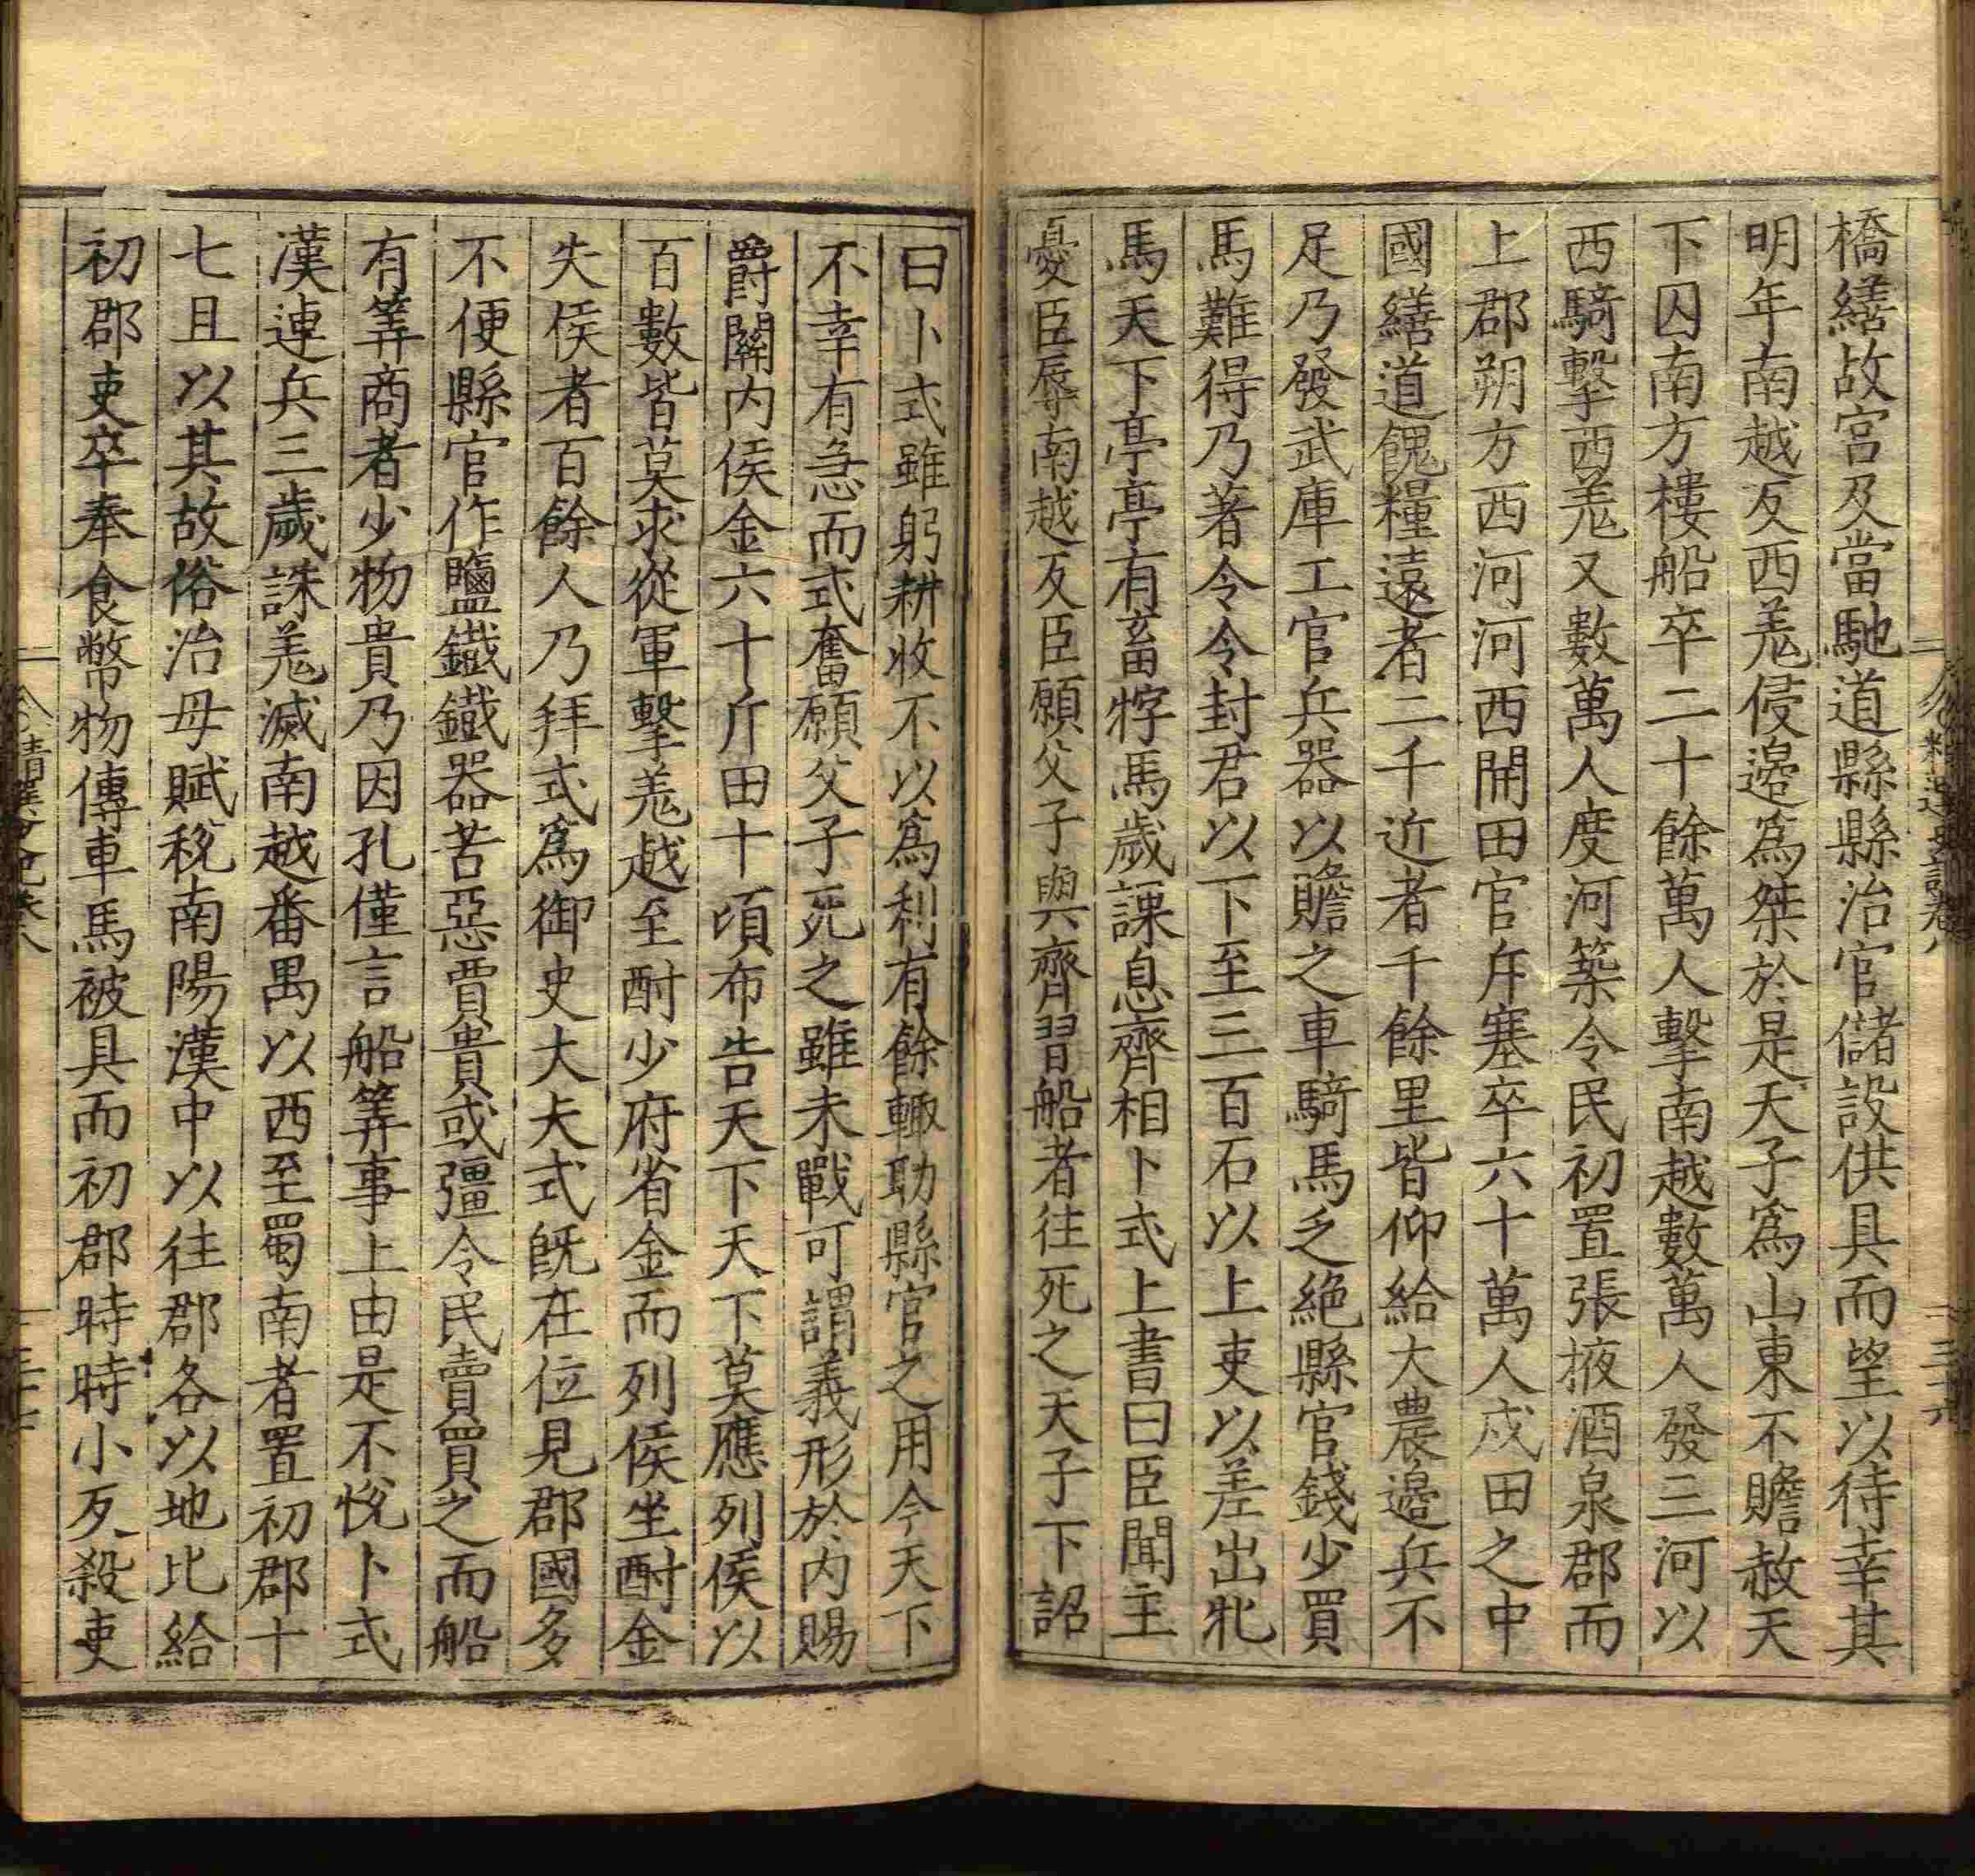 橋繕故宮及當馳道縣縣治官儲設供具而望以待幸其
明年南越反西羗侵邉爲桀於是天子爲山東不贍赦天
下囚南方樓船卒二十餘萬人擊南越數萬人發三河以
西騎擊西羗又數萬人度河築令民初置張掖酒泉郡而
上郡朔方西河河西開田官斥塞卒六十萬人戍田之中
國繕道餽糧遠者二千近者千餘里皆仰給大農邉兵不
足乃發武庫工官兵器以贍之車騎馬乏絕縣官錢少買
馬難得乃著令令封君以下至三百石以上吏以差出牝
馬天下亭亭有畜牸馬歲課息齊相卜式上書曰臣聞主
憂臣辱南越反臣願父子與齊習船者往死之天子下詔
曰卜式雖躬耕收不以爲利有餘輙助縣官之用今天下
不幸有急而式奮願父子死之雖未戰可謂義形於内賜
爵關内侯金六十斤田十頃布告天下天下莫應列侯以
百數皆莫求從軍擊羗越至酎少府省金而列侯坐酎金
失侯者百餘人乃拜式爲御史大夫式旣在位見郡國多
不便縣官作鹽鐵鐵器苦惡賈貴或彊令民賣買之而船
有筭商者少物貴乃因孔僅言船筭事上由是不悅卜式
漢連兵三歲誅羗滅南越番禺以西至蜀南者置初郡十
七且以其故俗治毋賦稅南陽漢中以往郡各以地比給
初郡吏卒奉食幣物傳車馬被具而初郡時時小反殺吏